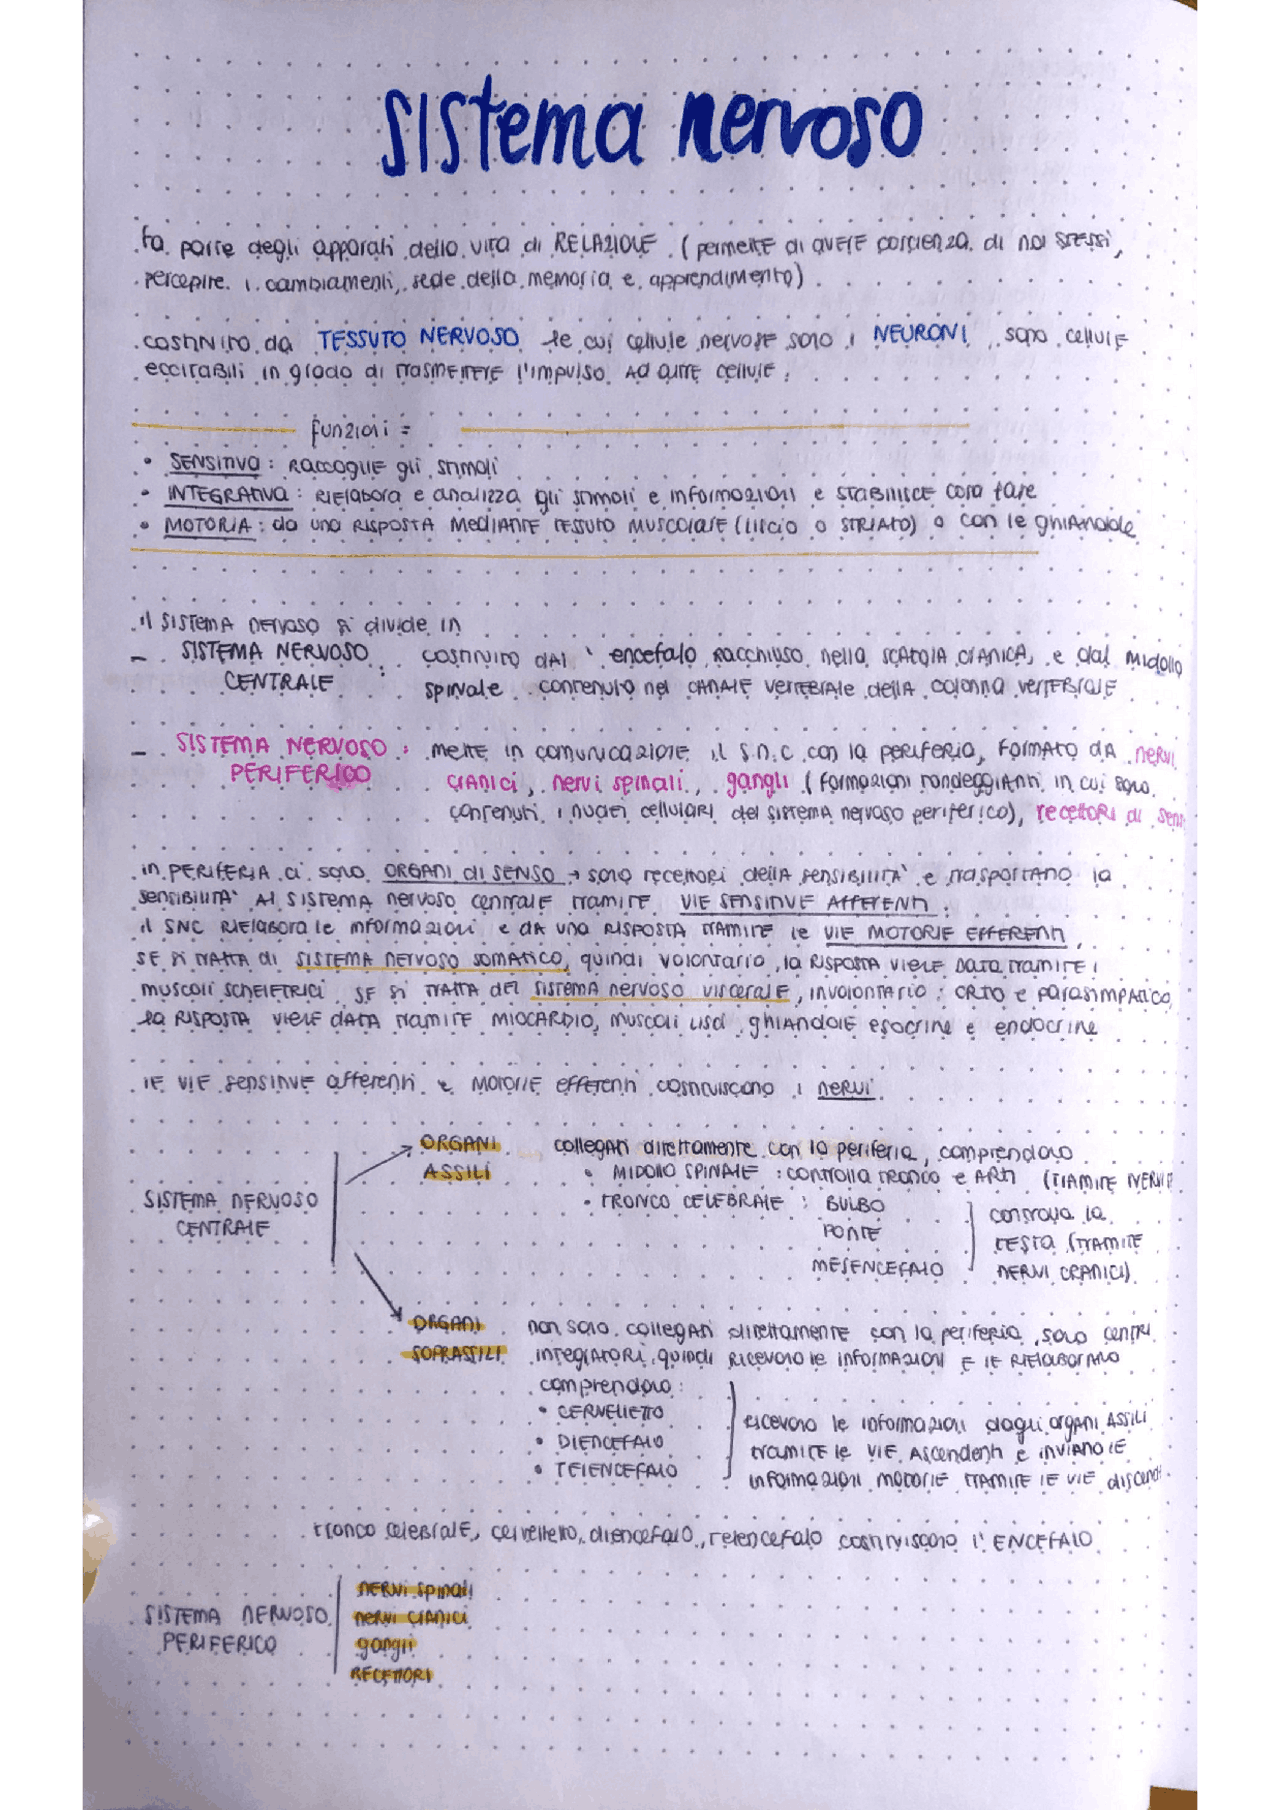 sistema nervoso
fa parte degli apparati della vita di RELAZIONE (permette di avere coscienza di noi stessi,
percepire i cambiamenti, sede della memoria e apprendimento)
costituito da TESSUTO NERVOSO le cui cellule nervose sono i NEURONI, sono cellule
eccitabili in grado di trasmettere l'impulso ad altre cellule.
funzioni =
• SENSITIVA: RACCOGLIE gli stimoli
• INTEGRATIVA: RIELABORA e analizza gli stimoli e informazioni e STABILISCE cosa fare
• MOTORIA: da una RISPOSTA MEDIANTE TESSUTO MUSCOLARE (liscio o STRIATO) o con le ghiandole
il SISTEMA nervoso si divide in
- SISTEMA NERVOSO : costituito dall' encefalo RACCHIUSO nella SCATOLA CRANICA, e dal midollo
CENTRALE spinale contenuto nel CANALE VERTEBRALE della colonna VERTEBRALE
- SISTEMA NERVOSO : mette in comunicazione il S.N.C con la periferia, FORMATO DA nervi
PERIFERICO CRANICI, nervi spinali, gangli (formazioni rondeggianti in cui sono
contenuti i nuclei cellulari del sistema nervoso periferico), recettori di sens
in PERIFERIA ci sono ORGANI di SENSO → sono recettori della sensibilità e trasportano la
sensibilità al SISTEMA nervoso centrale TRAMITE VIE SENSITIVE AFFERENTI.
il SNC RIELABORA le informazioni e DA una RISPOSTA TRAMITE le VIE MOTORIE EFFERENTI.
SE SI TRATTA di SISTEMA NERVOSO SOMATICO, quindi volontario, la RISPOSTA viene DATA TRAMITE i
MUSCOLI SCHELETRICI SE SI TRATTA DEL SISTEMA nervoso viscerale, involontario: ORTO e parasimpatico,
la RISPOSTA viene DATA TRAMITE MIOCARDIO, MUSCOLI LISCI, ghiandole esocrine e endocrine
le VIE SENSITIVE afferenti e MOTORIE EFFERENTI costituiscono i nervi
ORGANI collegati direttamente con la periferia, comprendono
ASSILI • MIDOLLO SPINALE : controlla tronco e ARTI (TRAMITE NERVI
SISTEMA NERVOSO • TRONCO CELEBRALE : BULBO controlla la
CENTRALE PONTE TESTA (TRAMITE
MESENCEFALO NERVI CRANICI)
ORGANI non sono collegati direttamente con la periferia, sono centri
SOPRASSILI integratori, quindi RICEVONO le INFORMAZIONI E LE RIELABORANO
comprendono:
• CERVELLETTO ricevono le informazioni dagli organi ASSILI
• DIENCEFALO tramite le VIE Ascendenti e INVIANO le
• TELENCEFALO INFORMAZIONI MOTORIE TRAMITE le VIE discend
tronco celebrale, cervelletto, diencefalo, telencefalo costituiscono l'ENCEFALO
NERVI spinali
SISTEMA NERVOSO nervi CRANICI
PERIFERICO gangli
RECETTORI